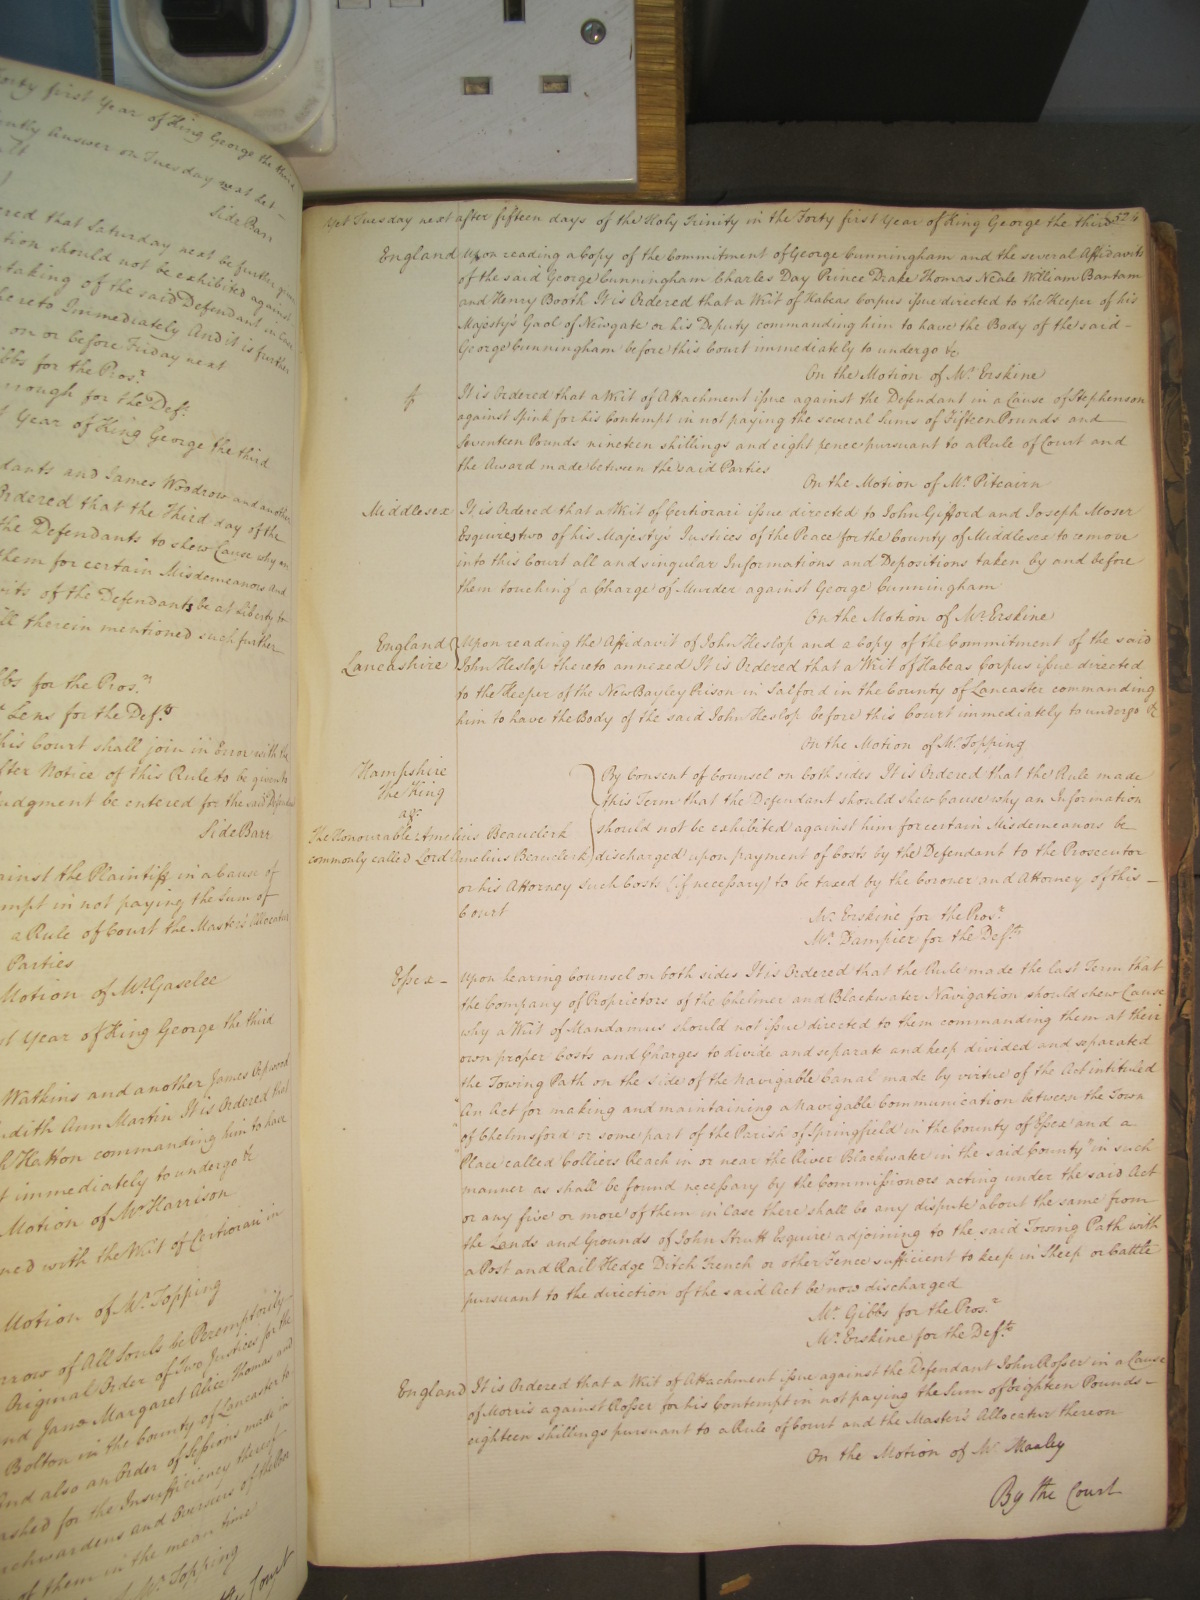 Forty first Year of King George the third
Answer on Tuesday next
Side Barr
ered that Saturday next be further given
tion should not be exhibited against
taking of the said Defendant
hereto Immediately And it is further
on or before Friday next
bbs for the Pros.r
rrough for the Def.t
t Year of King George the third
dants and James Woodrow and another
Ordered that the third day of the
the Defendants to shew Cause why an
them for certain Misdemeanors and
vits of the Defendants be at liberty to
ill therein mentioned such further
bbs for the Pros.rs
r Lens for the Def.ts
his Court shall join in Error with the
fter Notice of this Rule to be given to
udgment be entered for the said Defendant
Side Barr
ainst the Plaintiff in a Cause of
mpt in not paying the Sum of
a Rule of Court the Master's Allocatur
Parties
Motion of Mr. Gaselee
st Year of King George the third
Watkins and another James
dith Ann Martin It is Ordered that
h Hatton commanding him to have
t immediately to undergo &c
Motion of Mr Harrison
ned with the Writ of Certiorari in
Motion of Mr. Topping
rrow of All Souls be Peremptorily
Original Order of Two Justices for the
nd Jane Margaret Alice Thomas and
Bolton in the County of Lancaster to
And also an Order of Sessions made in
ashed for the Insufficiency thereof
rchwardens and Overseers of the Poor
of them in the mean time
f Mr. Topping
By the Court
Yet Tuesday next after fifteen days of the Holy Trinity in the Forty first Year of King George the third
England Upon reading a Copy of the Commitment of George Cunningham and the several Affidavits
of the said George Cunningham Charles Day Prince Drake Thomas Neale William Bantam
and Henry Booth It is Ordered that a Writ of Habeas Corpus issue directed to the Keeper of his
Majesty's Gaol of Newgate or his Deputy commanding him to have the Body of the said -
George Cunningham before this Court immediately to undergo &c
On the Motion of Mr. Erskine
It is Ordered that a Writ of Attachment issue against the Defendant in a Cause of Stephenson
against Spink for his Contempt in not paying the several Sums of Fifteen Pounds and
Seventeen Pounds nineteen shillings and eight pence pursuant to a Rule of Court and
the Award made between the said Parties
On the Motion of Mr. Pitcairn
Middlesex It is Ordered that a Writ of Certiorari issue directed to John Gifford and Joseph Moser
Esquires two of his Majesty's Justices of the Peace for the County of Middlesex to remove
into this Court all and singular Informations and Depositions taken by and before
them touching a Charge of Murder against George Cunningham
On the Motion of Mr. Erskine
England Upon reading the Affidavit of John Heslop and a Copy of the Commitment of the said
Lancashire John Heslop thereto annexed It is Ordered that a Writ of Habeas Corpus issue directed
to the Keeper of the New Bayley Prison in Salford in the County of Lancaster commanding
him to have the Body of the said John Heslop before this Court immediately to undergo &c
On the Motion of Mr. Topping
Hampshire By Consent of Counsel on both sides It is Ordered that the Rule made
The King this Term that the Defendant should shew Cause why an Information
agt. should not be exhibited against him for certain Misdemeanors be
The Honourable Amelius Beauclerk
commonly called Lord Amelius Beauclerk discharged upon payment of Costs by the Defendant to the Prosecutor
or his Attorney Such Costs (if necessary) to be taxed by the Coroner and Attorney of this -
Court
Mr. Erskine for the Pros.r
Mr. Dampier for the Def.t
Essex - Upon hearing Counsel on both sides It is Ordered that the Rule made the last Term that
the Company of Proprietors of the Chelmer and Blackwater Navigation should shew Cause
why a Writ of Mandamus should not issue directed to them commanding them at their
own proper Costs and Charges to divide and separate and keep divided and separated
the Towing Path on the side of the navigable Canal made by virtue of the Act intituled
"An Act for making and maintaining a Navigable Communication between the Town
of Chelmsford or some part of the Parish of Springfield in the County of Essex and a
"Place called Colliers Reach in or near the River Blackwater in the said County" in such
manner as shall be found necessary by the Commissioners acting under the said Act
or any five or more of them in Case there shall be any dispute about the same from
the Lands and Grounds of John Strutt Esquire adjoining to the said Towing Path with
a Post and Rail Hedge Ditch Trench or other Fence sufficient to keep in Sheep or Cattle
pursuant to the direction of the said Act be now discharged
Mr. Gibbs for the Pros.r
Mr. Erskine for the Def.ts
England It is Ordered that a Writ of Attachment issue against the Defendant John Rosser in a Cause
of Morris against Rosser for his Contempt in not paying the Sum of Eighteen Pounds -
eighteen shillings pursuant to a Rule of Court and the Master's Allocatur thereon
On the Motion of Mr. Manley
By the Court